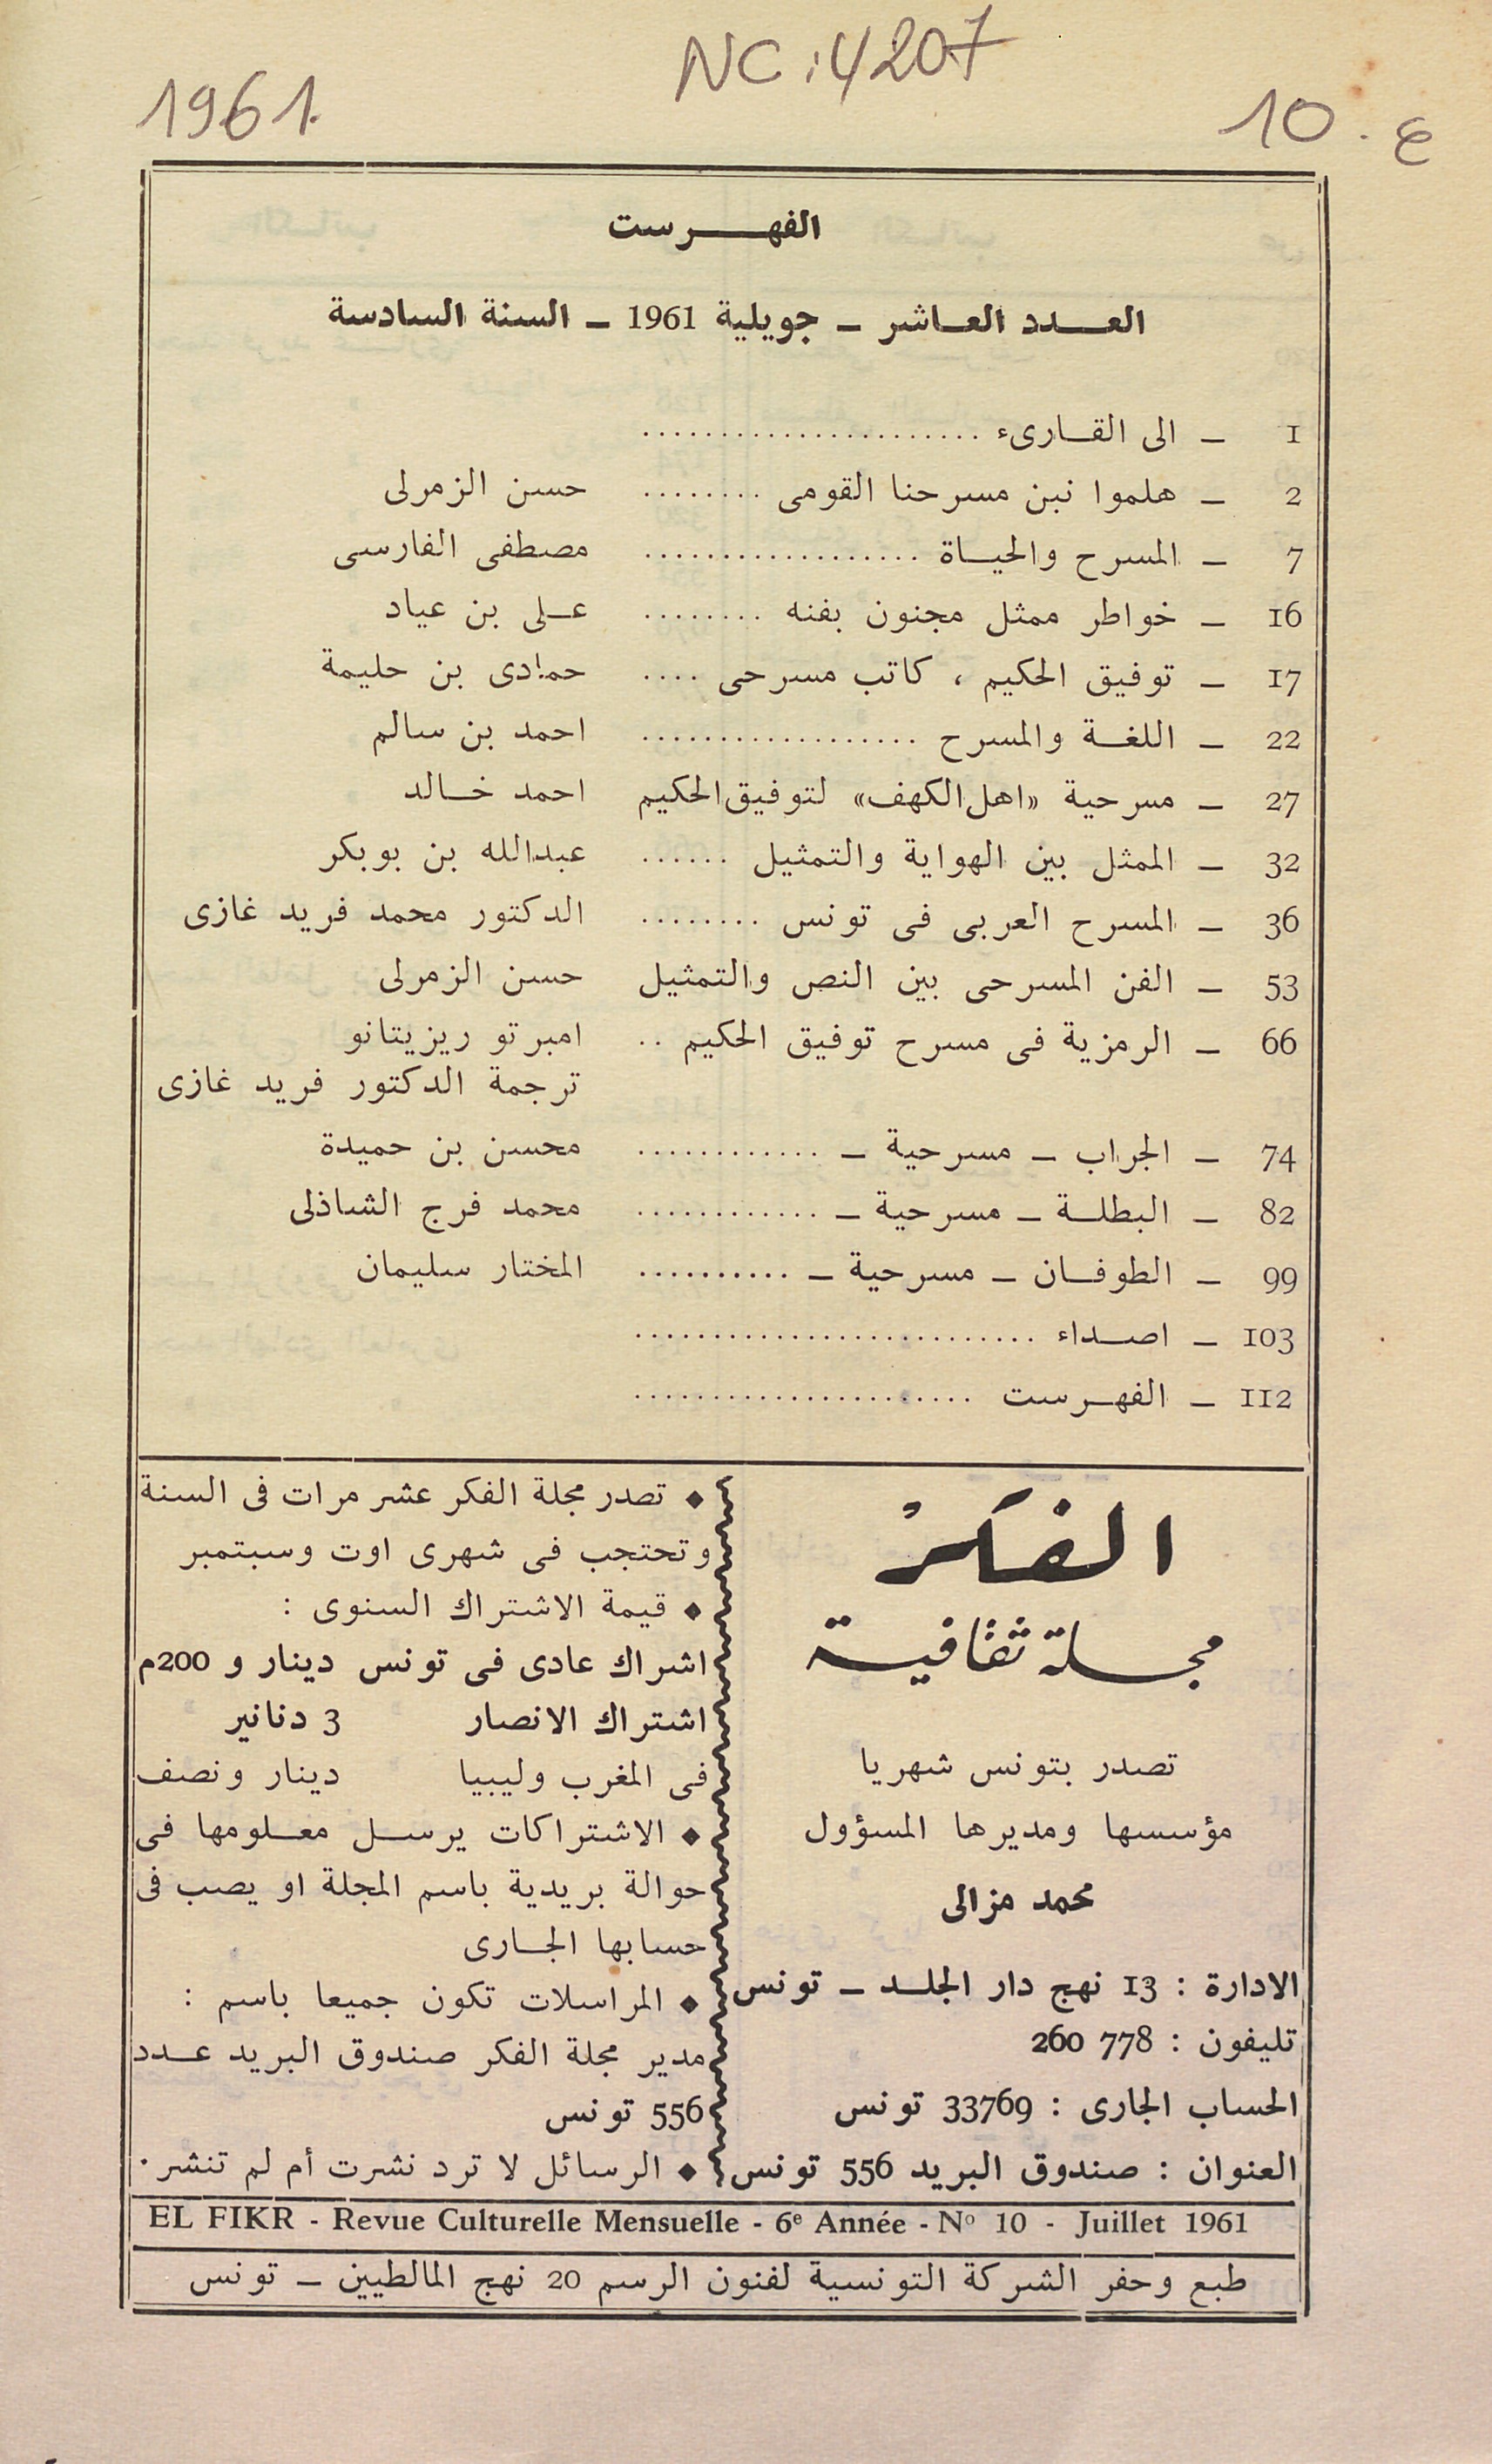 NC : 4207
1961
10 . ع
الفهـــرست
العـــدد العـاشر ــ جويلية 1961 ــ السنة السادسة
1 ــ الى القــارىء ......................
2 ــ هلموا نبن مسرحنا القومى ........ حسن الزمرلى
7 ــ المسرح والحيــاة .................. مصطفى الفارسى
16 ــ خواطر ممثل مجنون بفنه ........ عـلى بن عياد
17 ــ توفيق الحكيم ، كاتب مسرحى .... حمادى بن حليمة
22 ــ اللغــة والمسرح .................. احمد بن سالم
27 ــ مسرحية «اهل الكهف» لتوفيق الحكيم احمد خــالد
32 ــ الممثل بين الهواية والتمثيل ...... عبدالله بن بوبكر
36 ــ المسرح العربى فى تونس ........ الدكتور محمد فريد غازى
53 ــ الفن المسرحى بين النص والتمثيل حسن الزمرلى
66 ــ الرمزية فى مسرح توفيق الحكيم .. امبرتو ريزيتانو
ترجمة الدكتور فريد غازى
74 ــ الجراب ــ مسرحية ــ ............ محسن بن حميدة
82 ــ البطلــة ــ مسرحية ــ ............ محمد فرج الشاذلى
99 ــ الطوفــان ــ مسرحية ــ .......... المختار سليمان
103 ــ اصــداء ..........................
112 ــ الفهــرست ......................
الفكر
مجلة ثقافية
تصدر بتونس شهريا
مؤسسها ومديرها المسؤول
محمد مزالى
الادارة : 13 نهج دار الجلــد ــ تونس
تليفون : 778 260
الحساب الجارى : 33769 تونس
العنوان : صندوق البريد 556 تونس
♦ تصدر مجلة الفكر عشر مرات فى السنة
وتحتجب فى شهرى اوت وسبتمبر
♦ قيمة الاشتراك السنوى :
اشراك عادى فى تونس دينار و 200م
اشتراك الانصار 3 دنانير
فى المغرب وليبيا دينار ونصف
♦ الاشتراكات يرســل معــلومها فى
حوالة بريدية باسم المجلة او يصب فى
حسابها الجــارى
♦ المراسلات تكون جميعا باسم :
مدير مجلة الفكر صندوق البريد عــدد
556 تونس
♦ الرسائل لا ترد نشرت أم لم تنشر .
EL FIKR - Revue Culturelle Mensuelle - 6e Année - No 10 - Juillet 1961
طبع وحفر الشركة التونسية لفنون الرسم 20 نهج المالطيين ــ تونس